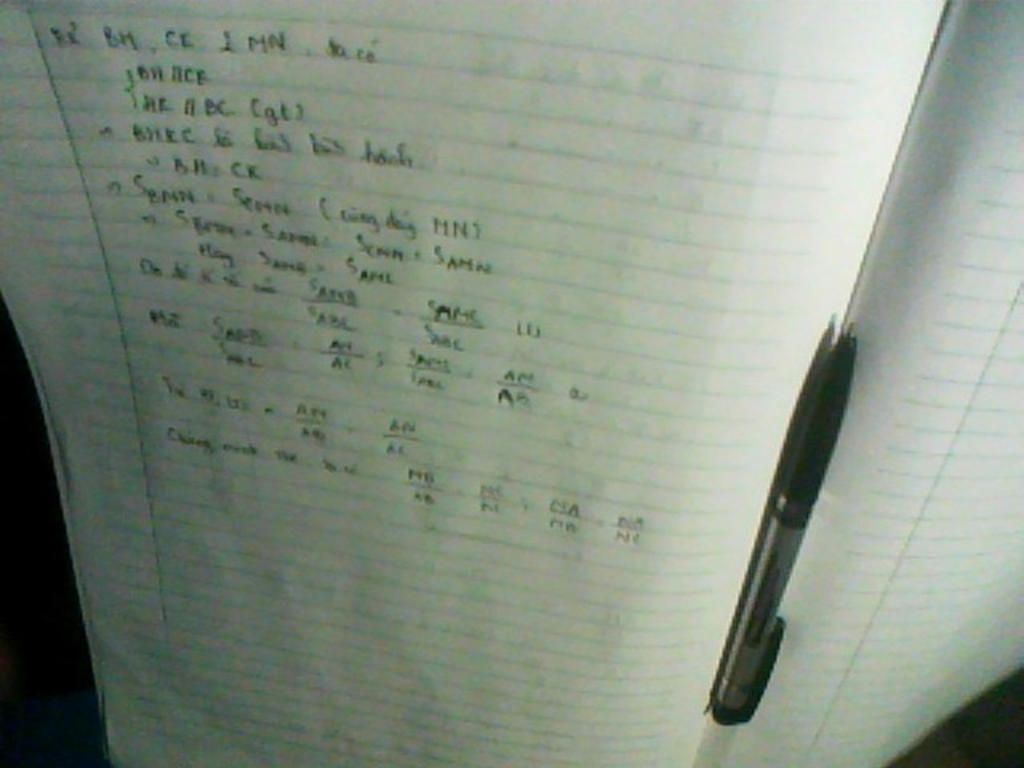 Kẻ BH, CK ⊥ MN, ta có
BH // CK
HK // BC (gt)
⇒ BHKC là hình bình hành
⇒ BH = CK
⇒ S_BMN = S_CMN (cùng đáy MN)
⇒ S_BMN + S_AMN = S_CMN + S_AMN
Hay S_ANB = S_AMC
Do đó ta có S_ANB/S_ABC = S_AMC/S_ABC (1)
Mà S_ANB/S_ABC = AN/AC ; S_AMC/S_ABC = AM/AB
Từ ⇒ AM/AB = AN/AC
Chứng minh ta có MB/AB = ; MA/MB = NA/NC